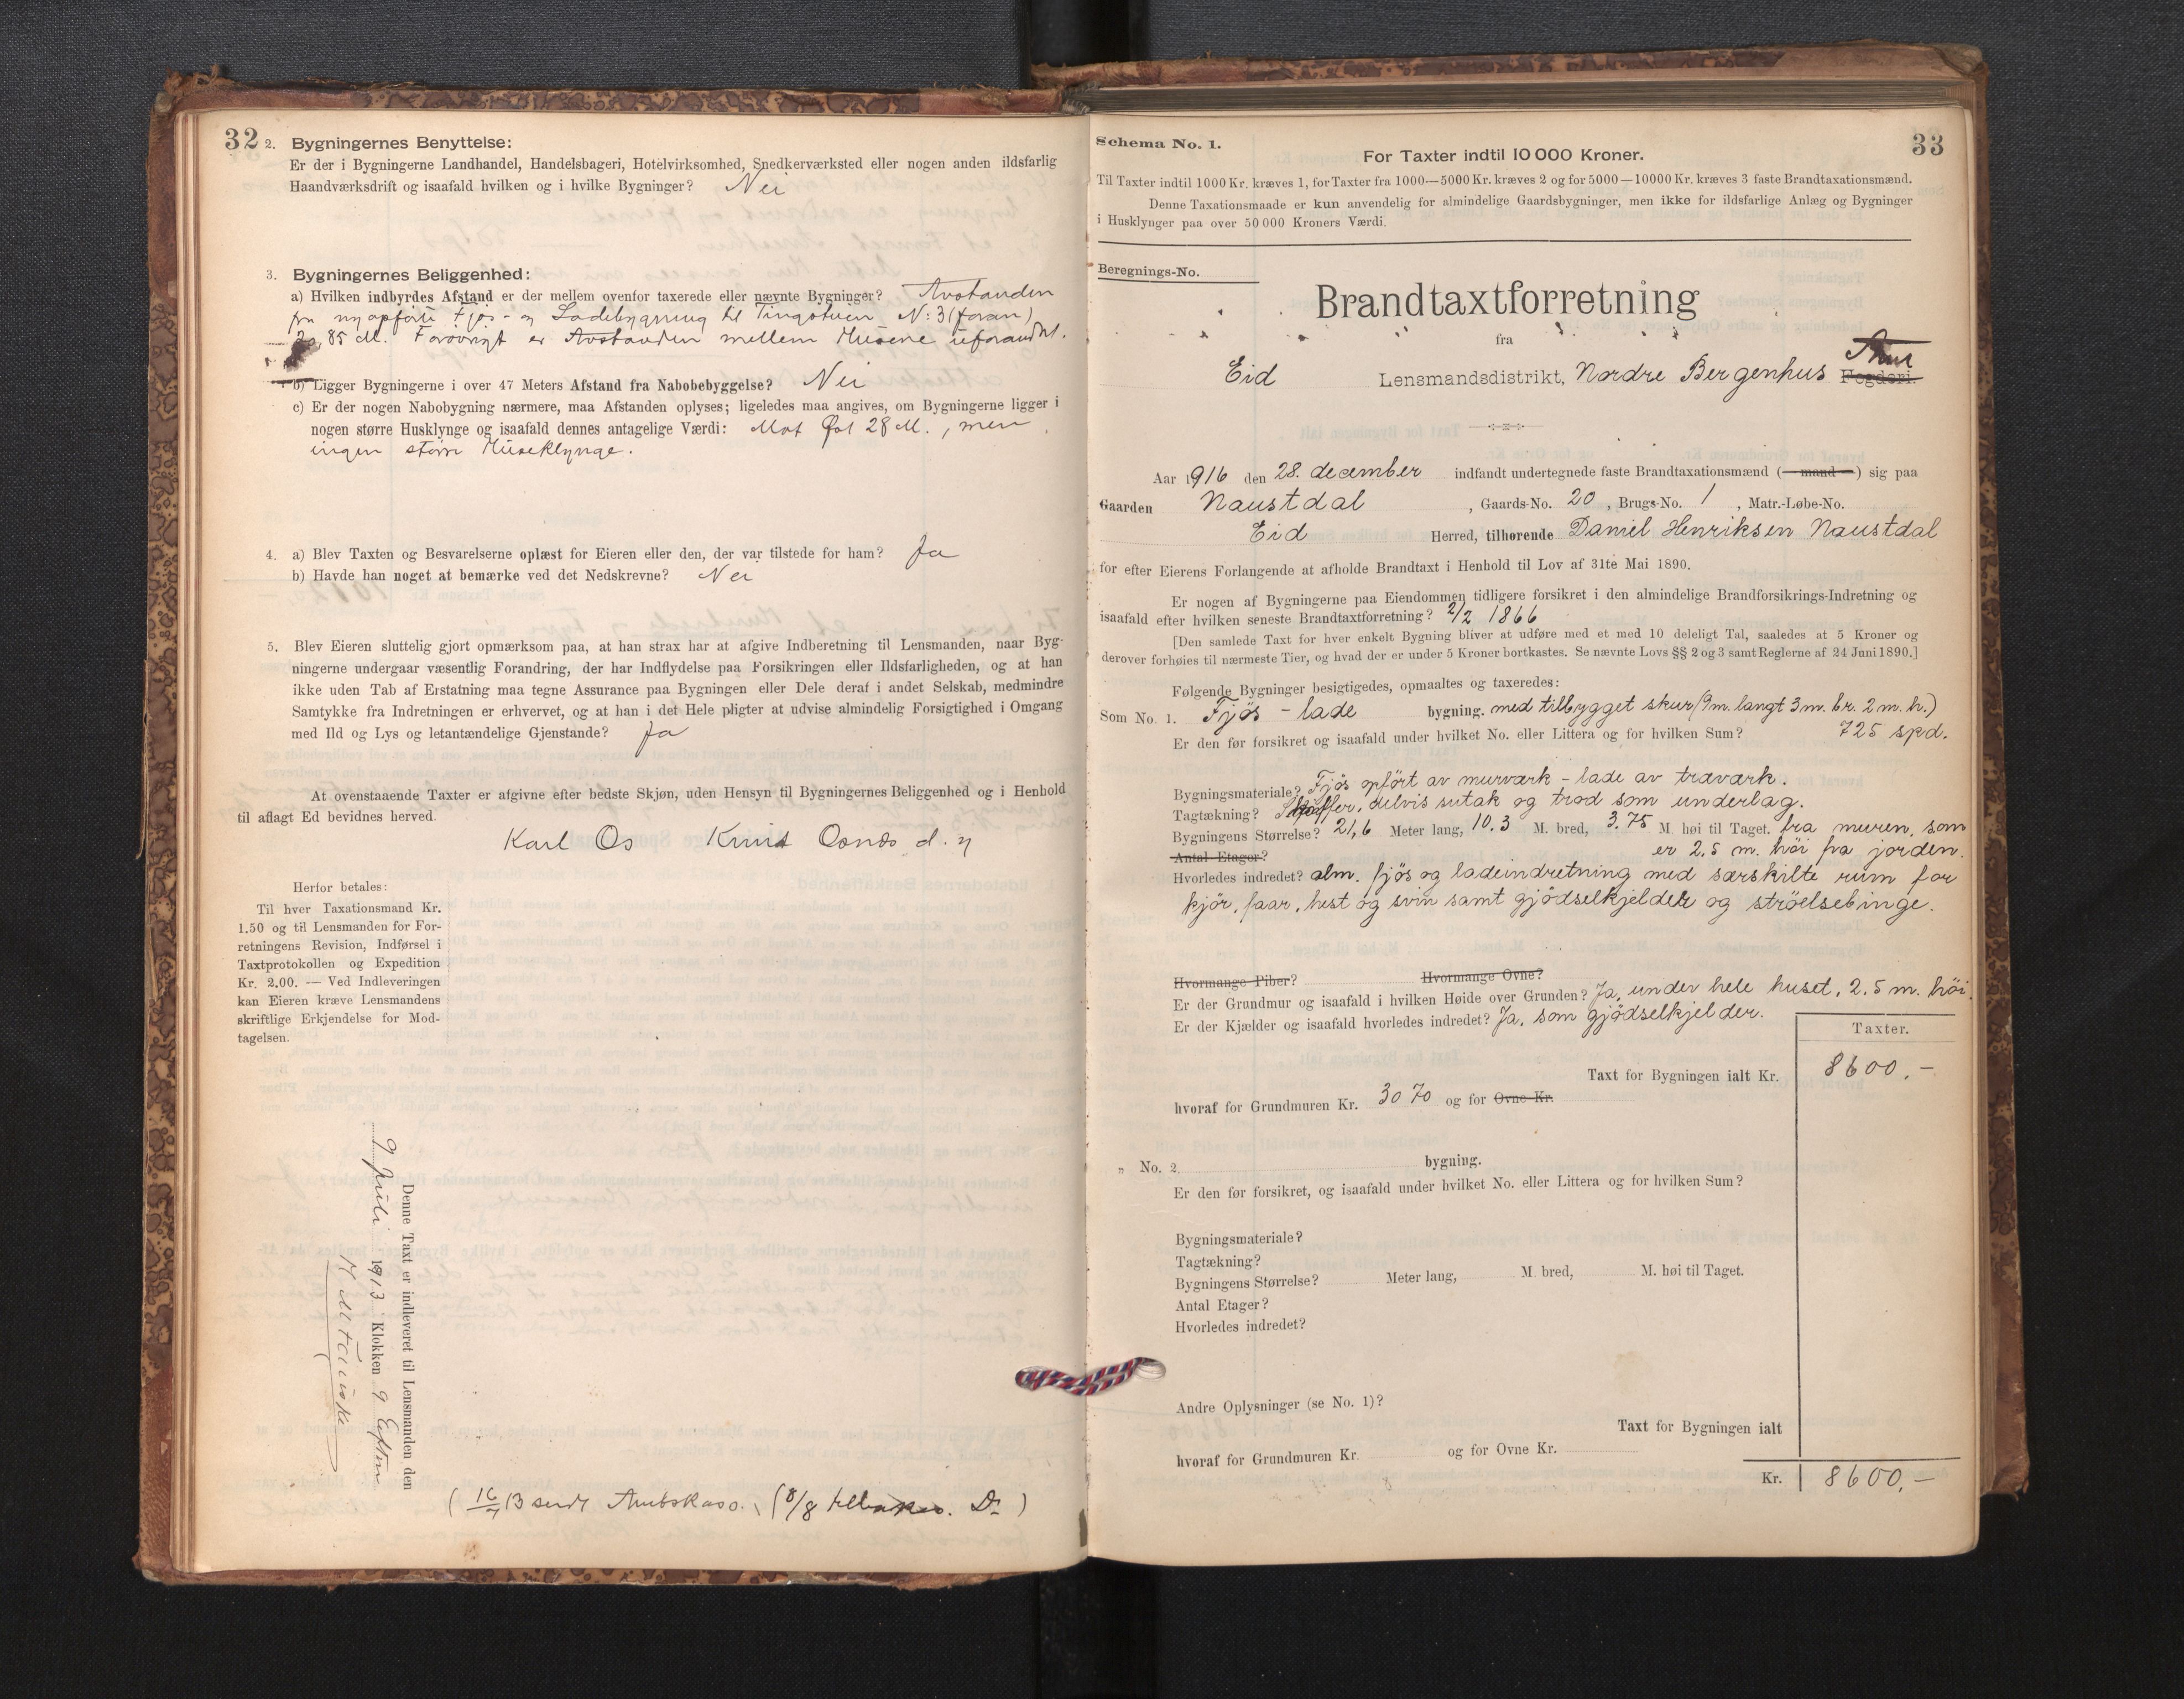 32
2. Bygningernes Benyttelse:
Er der i Bygningerne Landhandel, Handelsbageri, Hotelvirksomhed, Snedkerværksted eller nogen anden ildsfarlig
Haandværksdrift og isaafald hvilken og i hvilke Bygninger? Nei
3. Bygningernes Beliggenhed:
a) Hvilken indbyrdes Afstand er der mellem ovenfor taxerede eller nævnte Bygninger? Avstanden
fra nyopførte Fjøs- og Ladebygning til Tingstuen N:3 (foran)
85 M. Forøvrigt er Avstanden mellem Husene uforandret.
b) Ligger Bygningerne i over 47 Meters Afstand fra Nabobebyggelse? Nei
c) Er der nogen Nabobygning nærmere, maa Afstanden oplyses; ligeledes maa angives, om Bygningerne ligger i
nogen større Husklynge og isaafald dennes antagelige Værdi: Mot Øst 28 M., men
ingen større Huseklynge.
4. a) Blev Taxten og Besvarelserne oplæst for Eieren eller den, der var tilstede for ham? Ja
b) Havde han noget at bemærke ved det Nedskrevne? Nei
5. Blev Eieren sluttelig gjort opmærksom paa, at han strax har at afgive Indberetning til Lensmanden, naar Byg-
ningerne undergaar væsentlig Forandring, der har Indflydelse paa Forsikringen eller Ildsfarligheden, og at han
ikke uden Tab af Erstatning maa tegne Assurance paa Bygningen eller Dele deraf i andet Selskab, medmindre
Samtykke fra Indretningen er erhvervet, og at han i det Hele pligter at udvise almindelig Forsigtighed i Omgang
med Ild og Lys og letantændelige Gjenstande? Ja
At ovenstaaende Taxter er afgivne efter bedste Skjøn, uden Hensyn til Bygningernes Beliggenhed og i Henhold
til aflagt Ed bevidnes herved.
Karl Os Knut Osnes d. y
Herfor betales:
Til hver Taxationsmand Kr.
1.50 og til Lensmanden for For-
retningens Revision, Indførsel i
Taxtprotokollen og Expedition
Kr. 2.00. — Ved Indleveringen
kan Eieren kræve Lensmandens
skriftlige Erkjendelse for Mod-
tagelsen.
Denne Taxt er indleveret til Lensmanden den
9 Juli 1913 Klokken 9 Efterm
(16/7 13 sendt Amtskass. (8/8 tilbakes. D.)
33
Schema No. 1.
For Taxter indtil 10 000 Kroner.
Til Taxter indtil 1000 Kr. kræves 1, for Taxter fra 1000—5000 Kr. kræves 2 og for 5000—10000 Kr. kræves 3 faste Brandtaxationsmænd.
Denne Taxationsmaade er kun anvendelig for almindelige Gaardsbygninger, men ikke for ildsfarlige Anlæg og Bygninger
i Husklynger paa over 50 000 Kroners Værdi.
Beregnings-No.
Brandtaxtforretning
fra
Eid Lensmandsdistrikt, Nordre Bergenhus Amt Fogderi.
Aar 1916 den 28. december indfandt undertegnede faste Brandtaxationsmænd (—mand—) sig paa
Gaarden Naustdal, Gaards-No. 20, Brugs-No. 1, Matr.-Løbe-No.
Eid Herred, tilhørende Daniel Henriksen Naustdal
for efter Eierens Forlangende at afholde Brandtaxt i Henhold til Lov af 31te Mai 1890.
Er nogen af Bygningerne paa Eiendommen tidligere forsikret i den almindelige Brandforsikrings-Indretning og
isaafald efter hvilken seneste Brandtaxtforretning? 2/2 1866
[Den samlede Taxt for hver enkelt Bygning bliver at udføre med et med 10 deleligt Tal, saaledes at 5 Kroner og
derover forhøies til nærmeste Tier, og hvad der er under 5 Kroner bortkastes. Se nævnte Lovs §§ 2 og 3 samt Reglerne af 24 Juni 1890.]
Følgende Bygninger besigtigedes, opmaaltes og taxeredes:
Som No. 1. Fjøs - lade bygning. med tilbygget skur (9 m. langt 3 m. br. 2 m. h.)
Er den før forsikret og isaafald under hvilket No. eller Littera og for hvilken Sum? 725 spd.
Bygningsmateriale? Fjös opfört av murværk - lade av træværk.
Tagtækning? Skiffer, delvis sutak og trod som underlag.
Bygningens Størrelse? 21,6 Meter lang, 10.3 M. bred, 3.75 M. høi til Taget. fra muren, som
Antal Etager? er 2.5 m. höi fra jorden.
Hvorledes indredet? alm. fjös og ladeindretning med særskilte rum for
kjör, faar, hest og svin samt gjödselkjelder og ströelsebinge.
Hvormange Piber? Hvormange Ovne?
Er der Grundmur og isaafald i hvilken Høide over Grunden? Ja, under hele huset, 2.5 m. höi.
Er der Kjælder og isaafald hvorledes indredet? Ja, som gjödselkjelder.
Taxter.
Taxt for Bygningen ialt Kr. 8600.-
hvoraf for Grundmuren Kr. 3070 og for Ovne Kr.
„ No. 2. bygning.
Er den før forsikret, og isaafald under hvilket No. eller Littera og for hvilken Sum?
Bygningsmateriale?
Tagtækning?
Bygningens Størrelse? Meter lang, M. bred, M. høi til Taget.
Antal Etager?
Hvorledes indredet?
Andre Oplysninger (se No. 1)?
Taxt for Bygningen ialt
hvoraf for Grundmuren Kr. og for Ovne Kr.
Kr. 8600.-